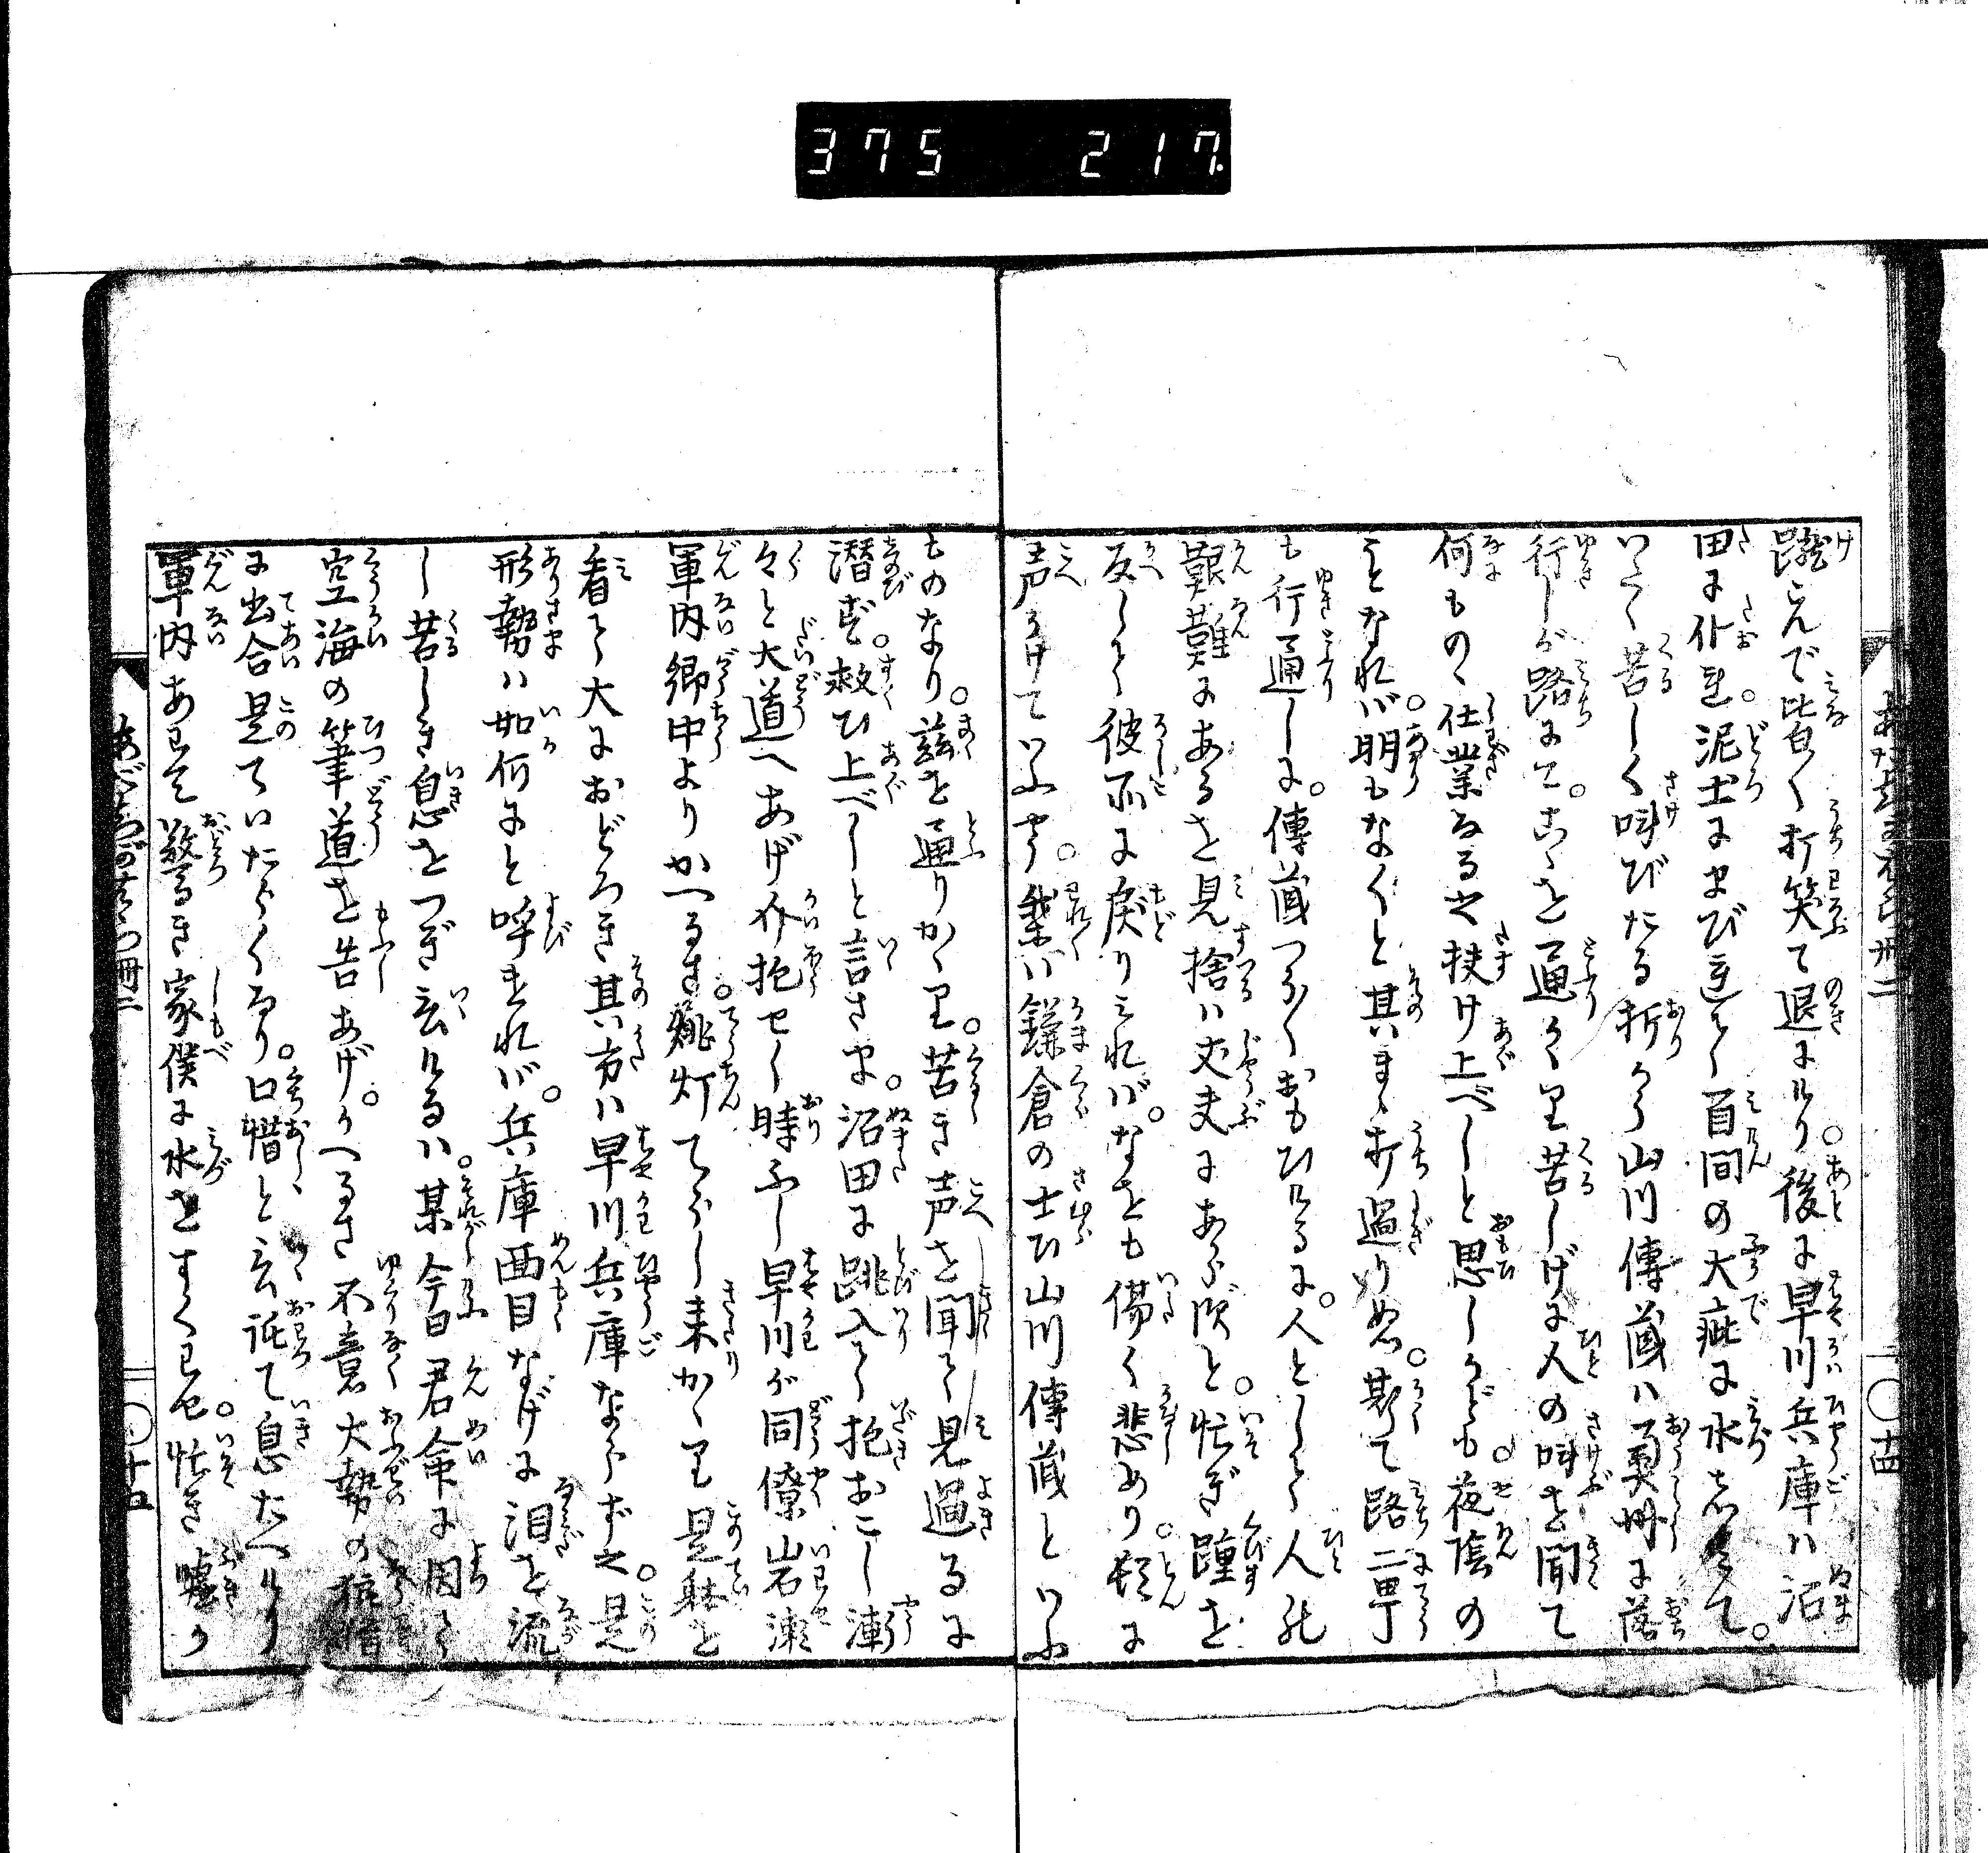 375 217
蹴こんで皆〻打笑て退にけり。後に早川兵庫ハ沼
田に仆れ。泥土にまびれて眉間の大疵に水しみて。
いとゞ苦しく叫びたる折から山川傳蔵ハ奥州に落
行しが路にて。こゝを通りかゝり苦しげに人の叫を聞て
何ものゝ仕業なるや扶け上べしと思しかども。夜陰の
ことなれバ。明もなくと其まゝ打過りぬ。斯て路二町
も行通しに。傳蔵つら〳〵おもひけるに。人として人の
艱難にあるを見捨ハ丈夫にあらずと。忙ぎ踵を
反して彼所に戻りみれバ。なをも傷く悲めり。頓に
声かけていふやう。我〻ハ鎌倉の士ひ山川傳蔵といふ
ものなり。茲を通りかゝり。苦き声を聞て見過るに
潜ず。救ひ上べしと言さま。沼田に跳入て抱おこし漸
々と大道へあげ介抱せし時ふし早川が同僚岩瀬
軍内郷中よりかへるさ。挑灯てらし来かゝり是躰を
看て大におどろき其方ハ早川兵庫ならずや。是
形勢ハ如何にと呼きれバ。兵庫面目なげに泪を流
し苦しき息をつぎ云けるハ。某今日君命に因て
空海の筆道を告あげ。かへるさ不意大勢の狼藉
に出合是ていたらくなり。口惜と云詫て息たへけり
軍内あわてゝ驚き家僕に水をすくわせ。忙き嘘か
十四